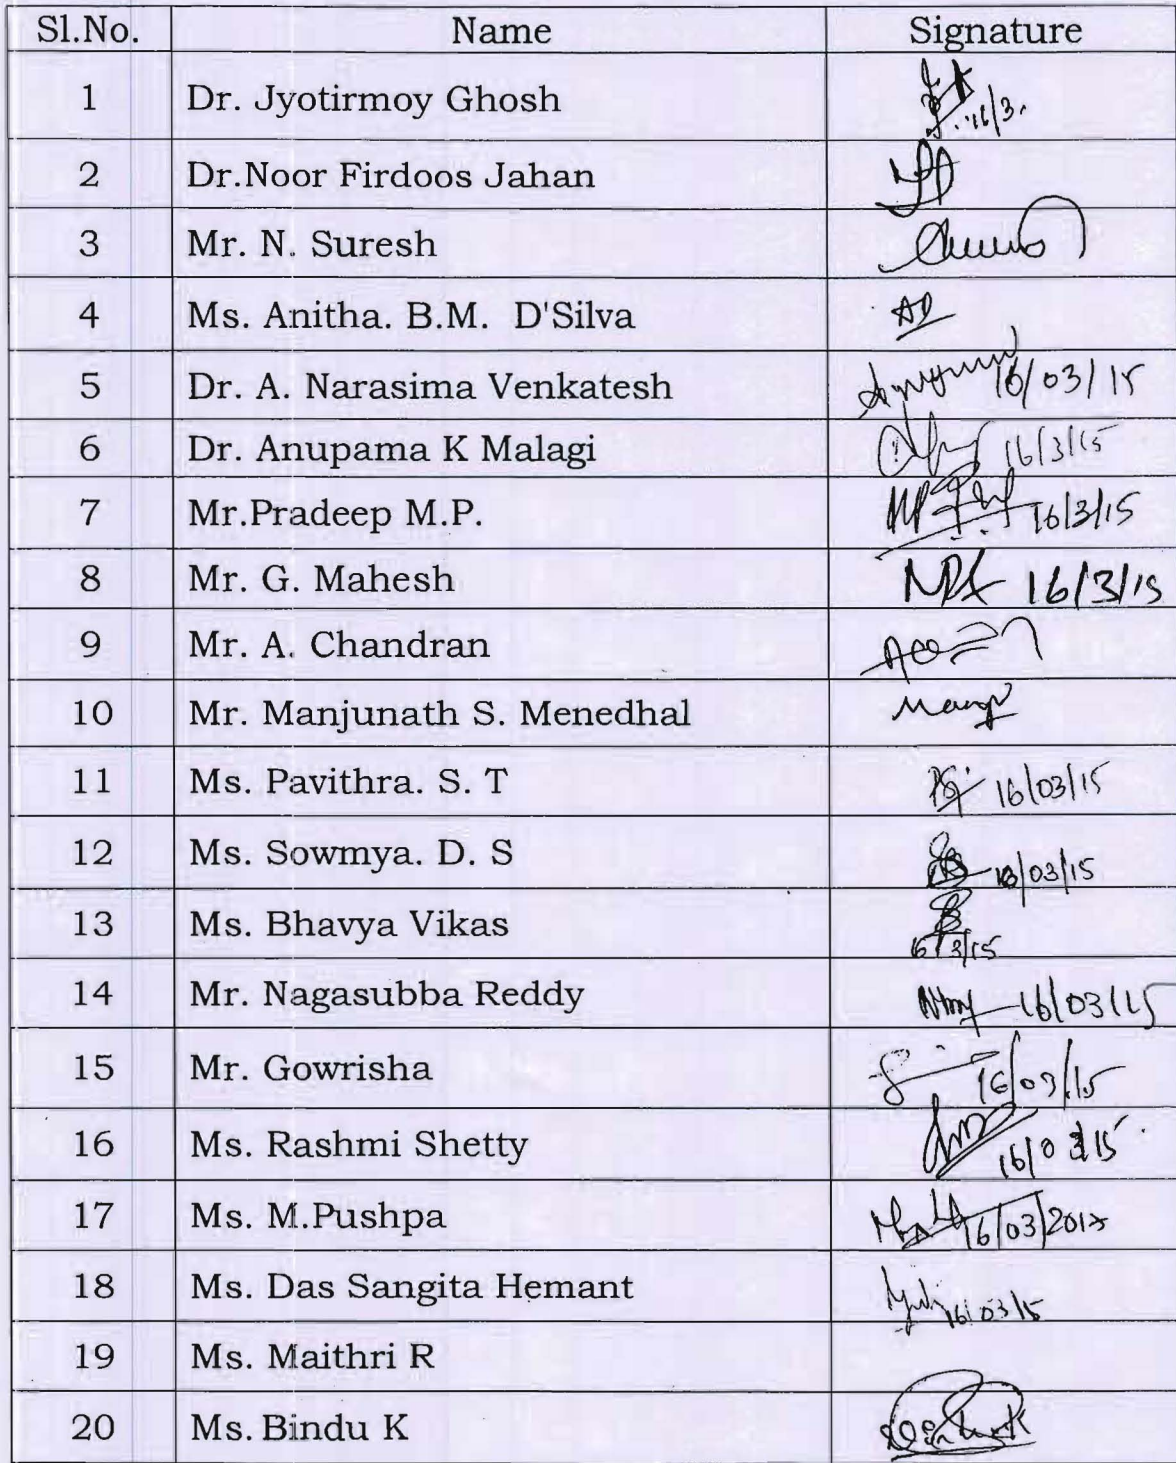 Sl.No. Name Signature
1 Dr. Jyotirmoy Ghosh 16/3.
2 Dr.Noor Firdoos Jahan
3 Mr. N. Suresh
4 Ms. Anitha. B.M. D'Silva AD
5 Dr. A. Narasima Venkatesh 16/03/15
6 Dr. Anupama K Malagi 16/3/15
7 Mr.Pradeep M.P. 16/3/15
8 Mr. G. Mahesh 16/3/15
9 Mr. A. Chandran
10 Mr. Manjunath S. Menedhal
11 Ms. Pavithra. S. T 16/03/15
12 Ms. Sowmya. D. S 16/03/15
13 Ms. Bhavya Vikas 16/3/15
14 Mr. Nagasubba Reddy 16/03/15
15 Mr. Gowrisha 16/03/15
16 Ms. Rashmi Shetty 16/03/15
17 Ms. M.Pushpa 16/03/2015
18 Ms. Das Sangita Hemant 16/03/15
19 Ms. Maithri R
20 Ms. Bindu K